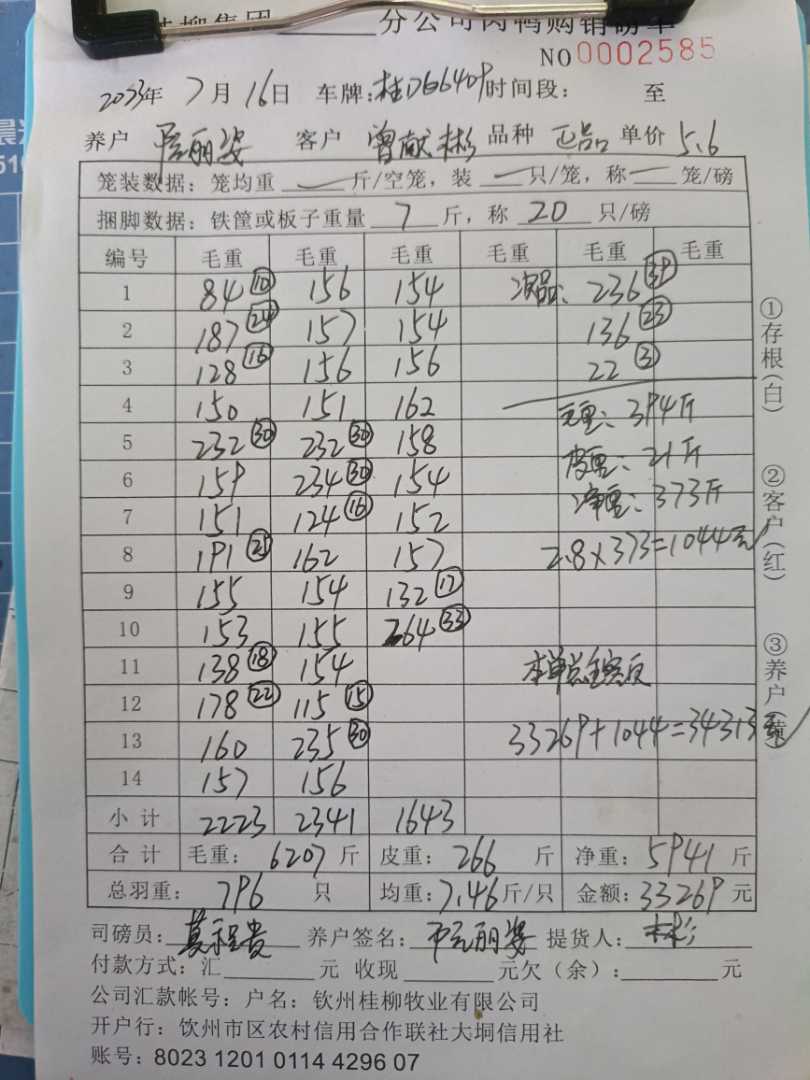 桂柳集团 分公司肉鸭购销磅单
NO 0002585
2023年 7月 16日 车牌:桂D66409 时间段: 至
养户 丽姿 客户 曾献彬 品种 正品 单价 5.6
笼装数据: 笼均重 — 斤/空笼, 装 — 只/笼, 称 — 笼/磅
捆脚数据: 铁筐或板子重量 7 斤, 称 20 只/磅
编号 毛重 毛重 毛重 毛重 毛重 毛重
1 84 ⑩ 156 154 次品: 236 ㊴
2 187 ㉔ 157 154 136 ㉓
3 128 ⑯ 156 156 22 ③
4 150 151 162 毛重: 394斤
5 232 ㉚ 232 ㉚ 158 皮重: 21斤
6 159 234 ㉚ 154 净重: 373斤
7 151 124 ⑯ 152
8 191 ㉕ 162 157 2.8×373=1044元
9 155 154 132 ⑰
10 153 155 264 ㉝
11 138 ⑱ 154 本单总金额
12 178 ㉒ 115 ⑮
13 160 235 ㉚ 33269+1044=34313元
14 157 156
小计 2223 2341 1643
合计 毛重: 6207 斤 皮重: 266 斤 净重: 5941 斤
总羽重: 796 只 均重: 7.46 斤/只 金额: 33269 元
司磅员: 莫程贵 养户签名: 丽姿 提货人: 彬
付款方式: 汇 元 收现 元欠(余): 元
公司汇款帐号: 户名: 钦州桂柳牧业有限公司
开户行: 钦州市区农村信用合作联社大垌信用社
账号: 8023 1201 0114 4296 07
①存根(白)
②客户(红)
③养户(黄)